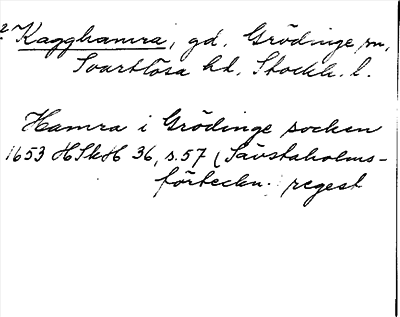 2 Kagghamra, gd. Grödinge sn,
Svartlösa hd. Stockh. l.
Hamra i Grödinge socken
1653 HSkH 36, s. 57 (Sävstaholms-
förteckn. regest